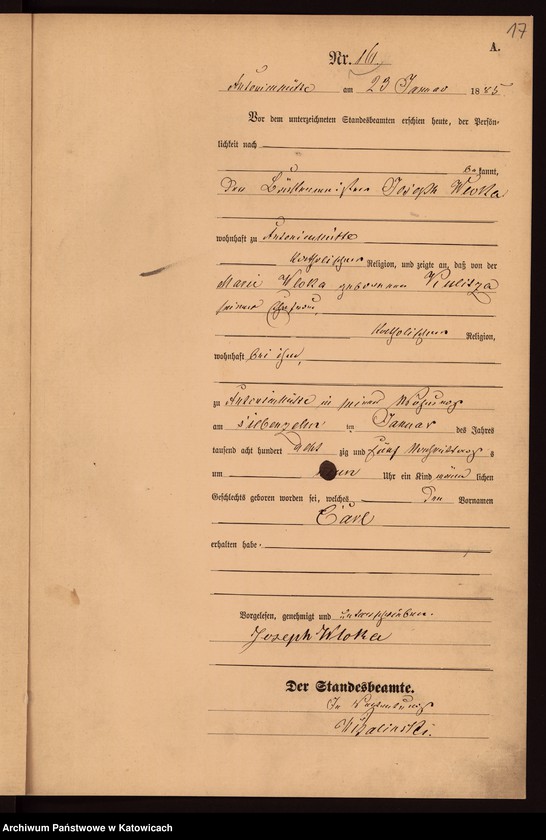 17
A.
Nr. 16
Antonienhütte am 23 Januar 1885
Vor dem unterzeichneten Standesbeamten erschien heute, der Persön-
lichkeit nach
bekannt,
Joseph Wloka
wohnhaft zu Antonienhütte
katholischer Religion, und zeigte an, daß von der
Marie Wloka geborenen
seiner Ehefrau,
katholischer Religion,
wohnhaft bei ihm,
zu Antonienhütte in seiner Wohnung
am siebenzehn ten Januar des Jahres
tausend acht hundert acht zig und fünf Nachmittags
um Uhr ein Kind männ lichen
Geschlechts geboren worden sei, welches den Vornamen
Carl
erhalten habe.
Vorgelesen, genehmigt und unterschrieben.
Joseph Wloka
Der Standesbeamte.
In Vertretung
Archiwum Państwowe w Katowicach